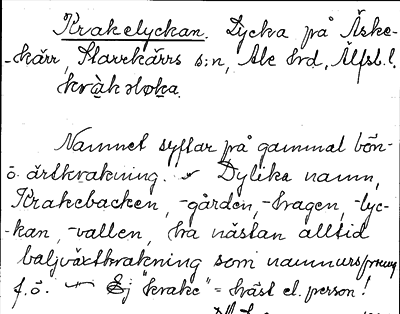 Krakelyckan. Lycka på Äske-
-kärr, Starrkärrs s:n, Ale hrd, Älfsb.l.
Namnet syftar på gammal bön-
o. ärtkrakning. Dylika namn,
Krakebacken, -gården, -hagen, -lyc-
-kan, -vallen, ha nästan alltid
baljväxtkrakning som namnursprung
f.ö. Ej "krake" = häst el. person!